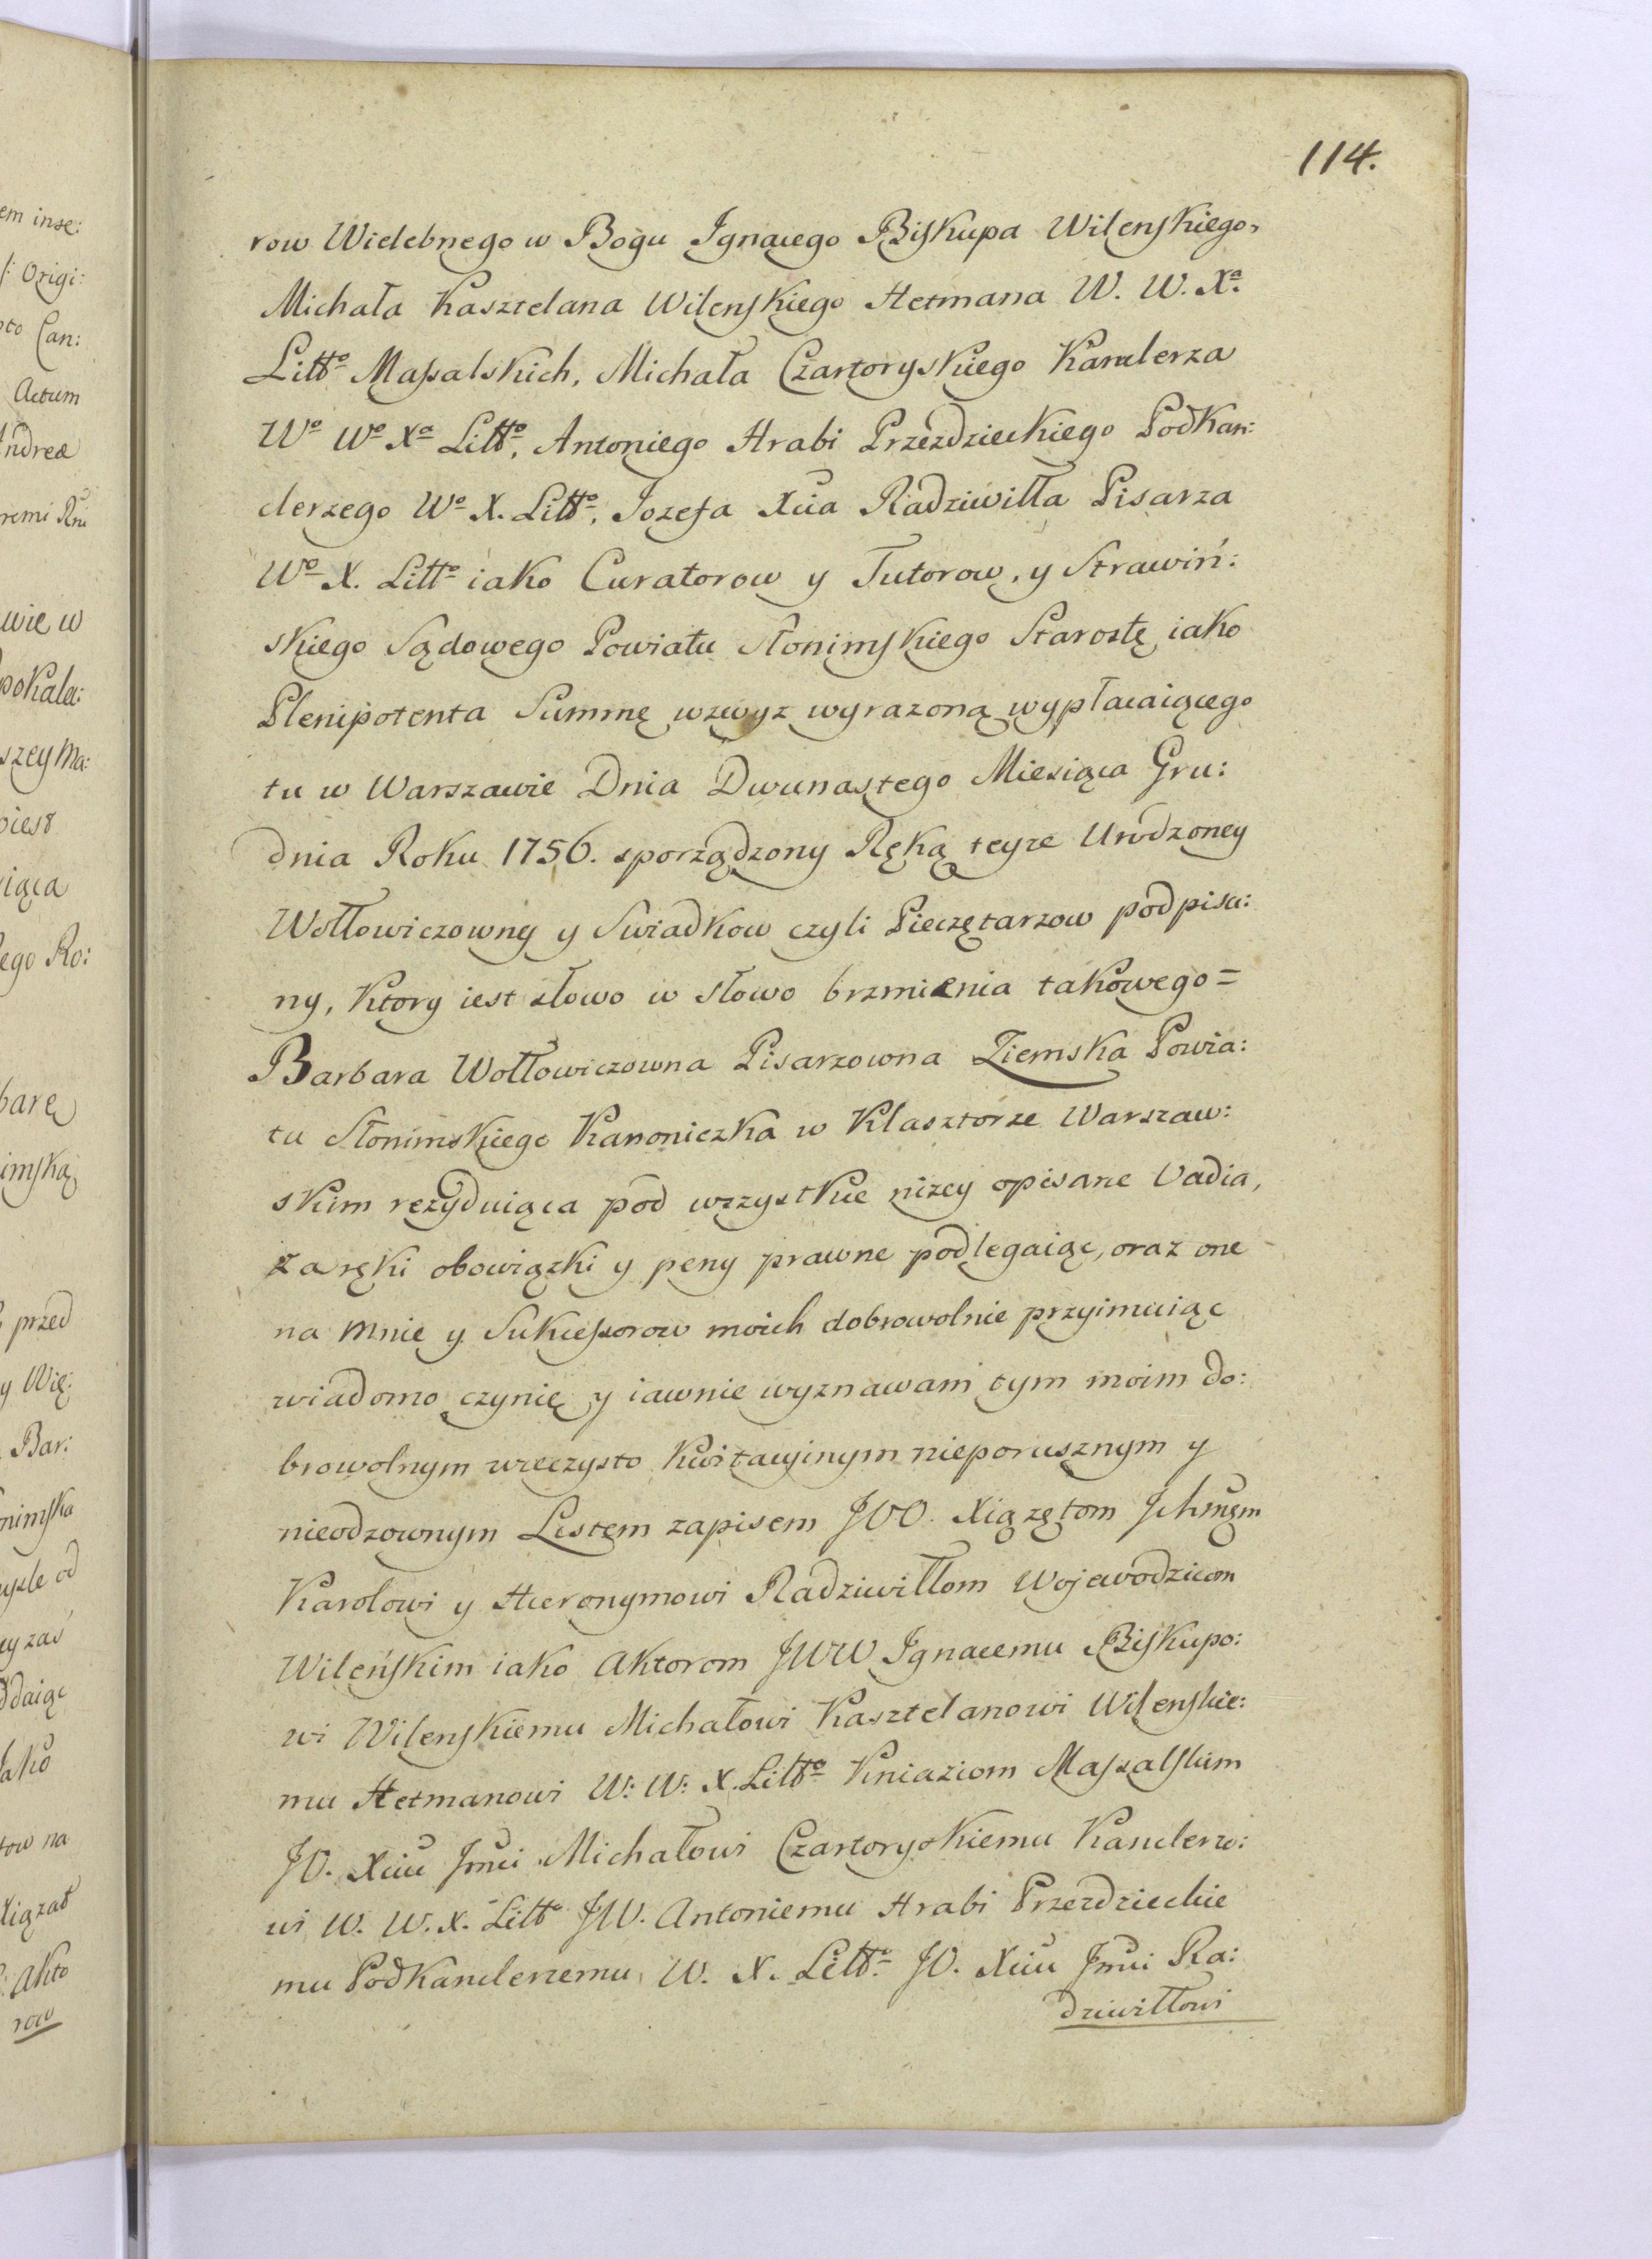 114.
row Wielebnego w Bogu Ignacego Biskupa Wilenskiego,
Michała Kasztelana Wilenskiego Hetmana W. W. Xa.
Litto Massalskich, Michała Czartoryskiego Kanclerza
Wo Wo Xa Litto, Antoniego Hrabi Przezdzieckiego Podkan:
clerzego Wo X. Litto, Jozefa Xcia Radziwiłła Pisarza
Wo X. Litto iako Curatorow y Tutorow, y Strawiń:
skiego Sądowego Powiatu Słonimskiego Starostę iako
Plenipotenta Summę wzwyz wyrazoną wypłacaiącego
tu w Warszawie Dnia Dwunastego Miesiąca Gru:
dnia Roku 1756. sporządzony Ręką teyze Urodzoney
Wołłowiczowny y Swiadkow czyli Pieczętarzow podpisa:
ny, Ktory iest słowo w słowo brzmienia takowego =
Barbara Wołłowiczowna Pisarzowna Ziemska Powia:
tu Słonimskiego Kanoniczka w Klasztorze Warszaw:
skim rezyduiąca pod wszystkie nizey opisane Vadia,
zaręki obowiązki y peny prawne podlegaiąc, oraz one
na mnie y Sukcessorow moich dobrowolnie przyimuiąc
wiadomo czynię y iawnie wyznawam tym moim do:
browolnym wieczysto Kwitacyinym nieporusznym y
nieodzownym Listem zapisem JOO. Xiązętom Ichmęm
Karolowi y Hieronymowi Radziwiłłom Wojewodzicom
Wileńskim iako Aktorom JWW Ignacemu Biskupo:
wi Wilenskiemu Michałowi Kasztelanowi Wilenskie:
mu Hetmanowi W: W: X. Litto Kniaziom Massalskim
JO. Xciu Jmci Michałowi Czartoryskiemu Kanclerzo:
wi W. W. X. Litto JW. Antoniemu Hrabi Przezdzieckie
mu Podkanclerzemu W. X. Litto JO. Xciu Jmci Ra:
dziwiłłowi